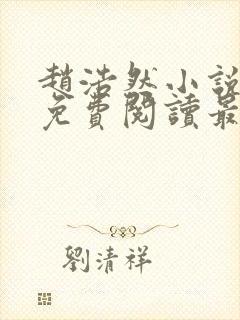 趙浩然小說
免費閱讀最
劉清祥